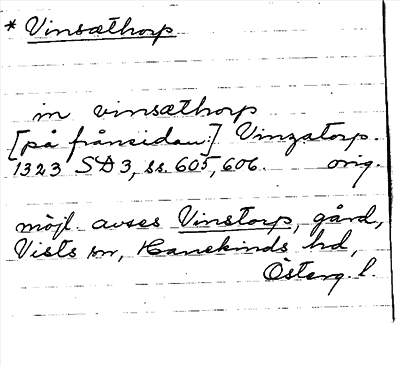 * Vinsæthorp
in vinsæthorp
[på frånsidan:] Vinzatorp.
1323 SD3, ss. 605, 606. orig.
möjl. avses Vinstorp, gård,
Vists sn, Hanekinds hd,
Österg. l.